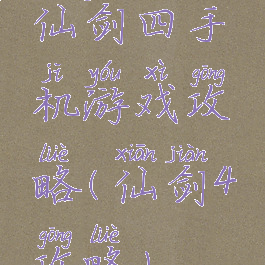 仙剑四手
jī yóu xì gōng
机游戏攻
lüè xiān jiàn
略(仙剑4
gōng lüè
攻略)